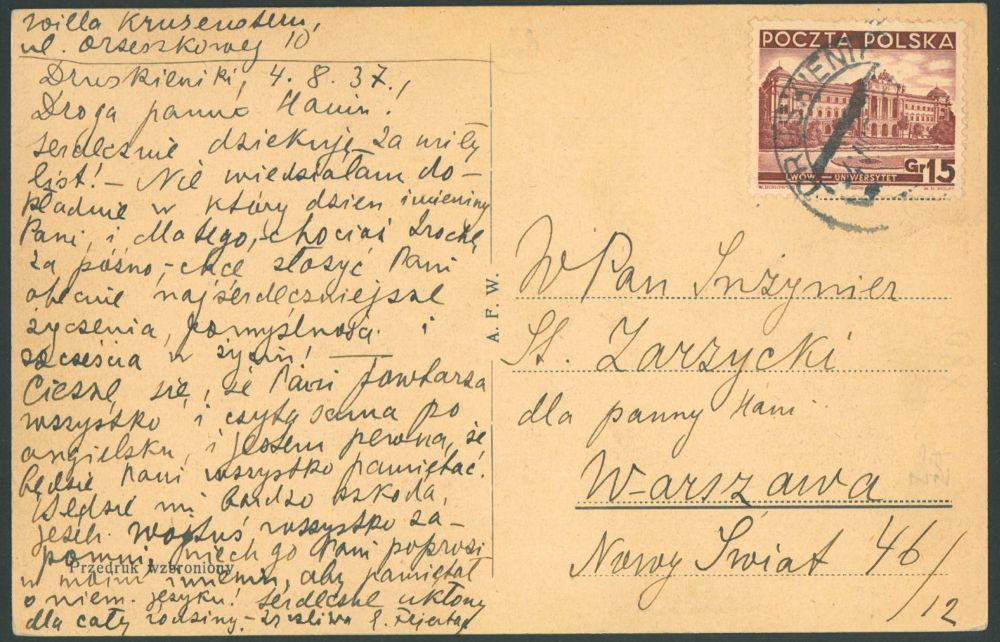 Willa Krusenstern,
ul. Orzeszkowej 10
Druskieniki, 4.8.37.,
Droga panno Haniu!
Serdecznie dziękuję za miły
list! – Nie wiedziałam do-
kładnie w który dzień imieniny
Pani, i dlatego, – chociaż trochę
za późno, – chcę złożyć Pani
obecnie najserdeczniejsze
życzenia, pomyślności i
szczęścia w życiu! —
Cieszę się, że Pani powtarza
wszystko i czyta sama po
angielsku, i jestem pewna, że
będzie Pani wszystko pamiętać.
Będzie mi bardzo szkoda,
jeżeli Wojtuś wszystko za-
pomni, niech go Pani poprosi
w moim imieniu, aby pamiętał
o niem. języku! Serdeczne ukłony
dla całej rodziny –
Przedruk wzbroniony
A. F. W.
POCZTA POLSKA
Gr 15
LWÓW – UNIWERSYTET
DRUSKIENIKI
WPan Inżynier
St. Zarzycki
dla panny Hani
Warszawa
Nowy Świat 46/12